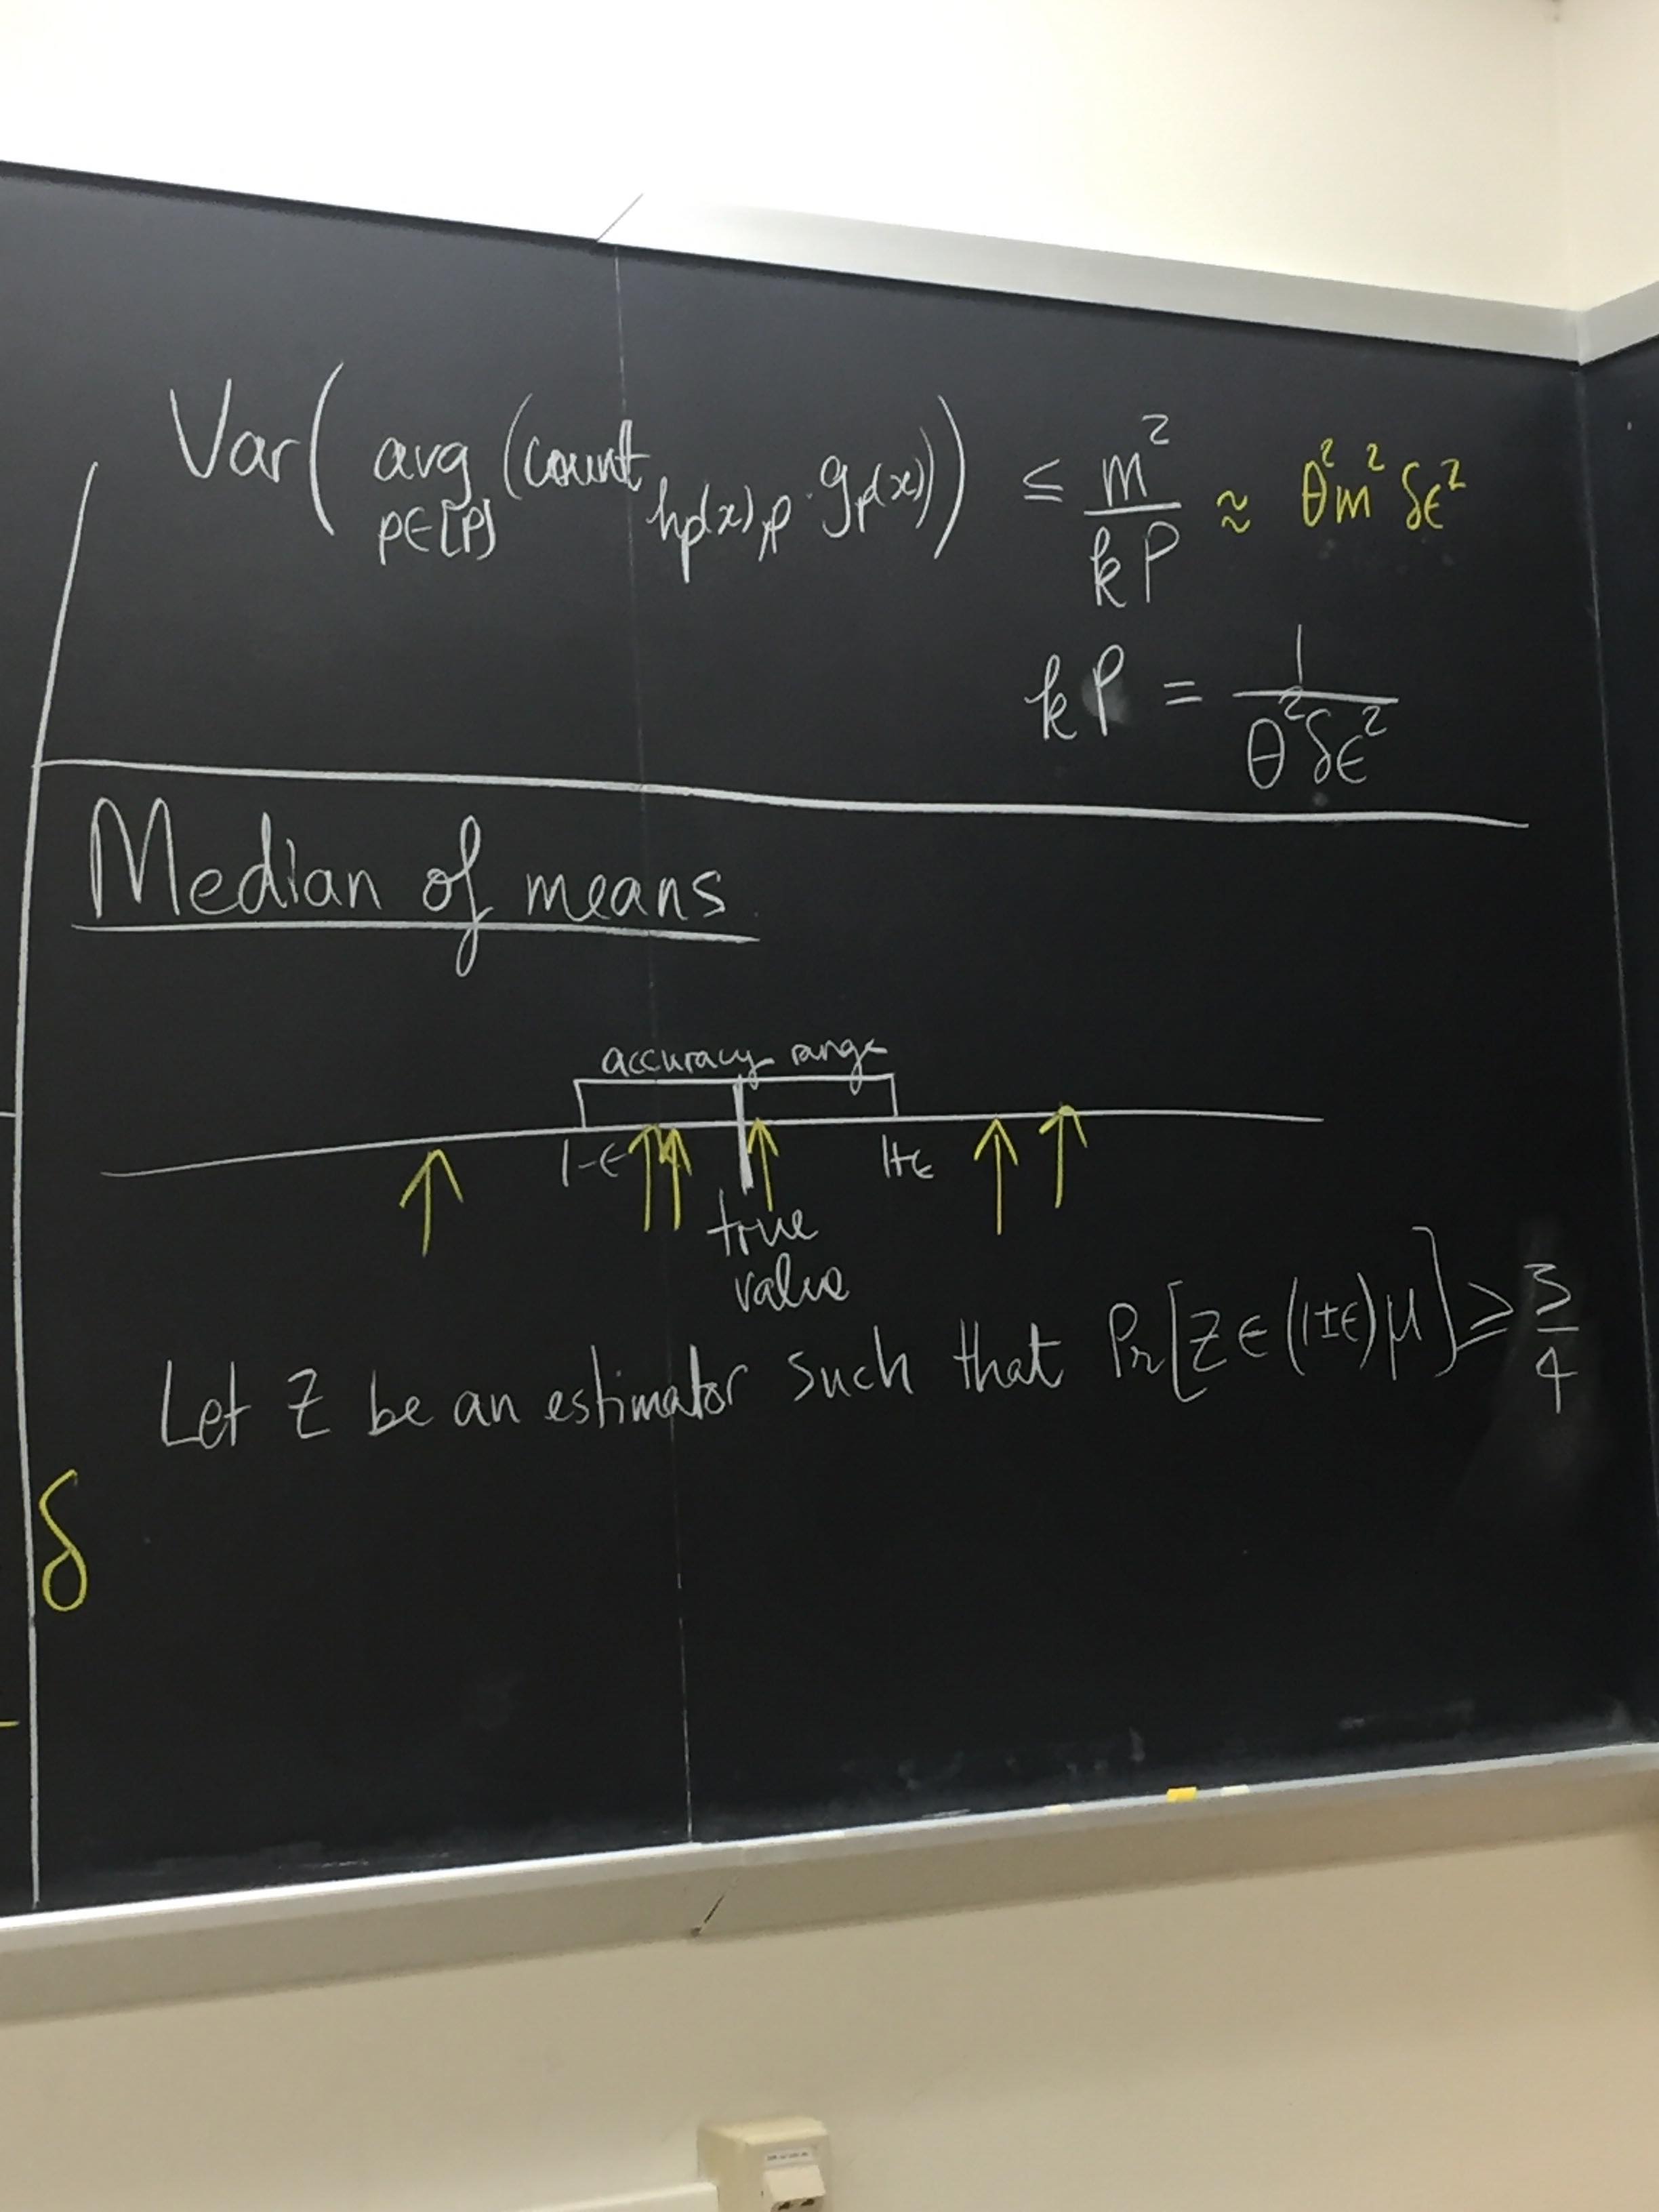 Var( avg p∈[P] (count h_p(x),p · g_p(x)) ) ≤ m²/kP ≈ θ²m²δε²
kP = 1/θ²δε²
Median of means
accuracy range
1-ε 1+ε
true
value
Let Z be an estimator such that Pr[Z ∈ (1±ε)μ] ≥ 3/4
δ